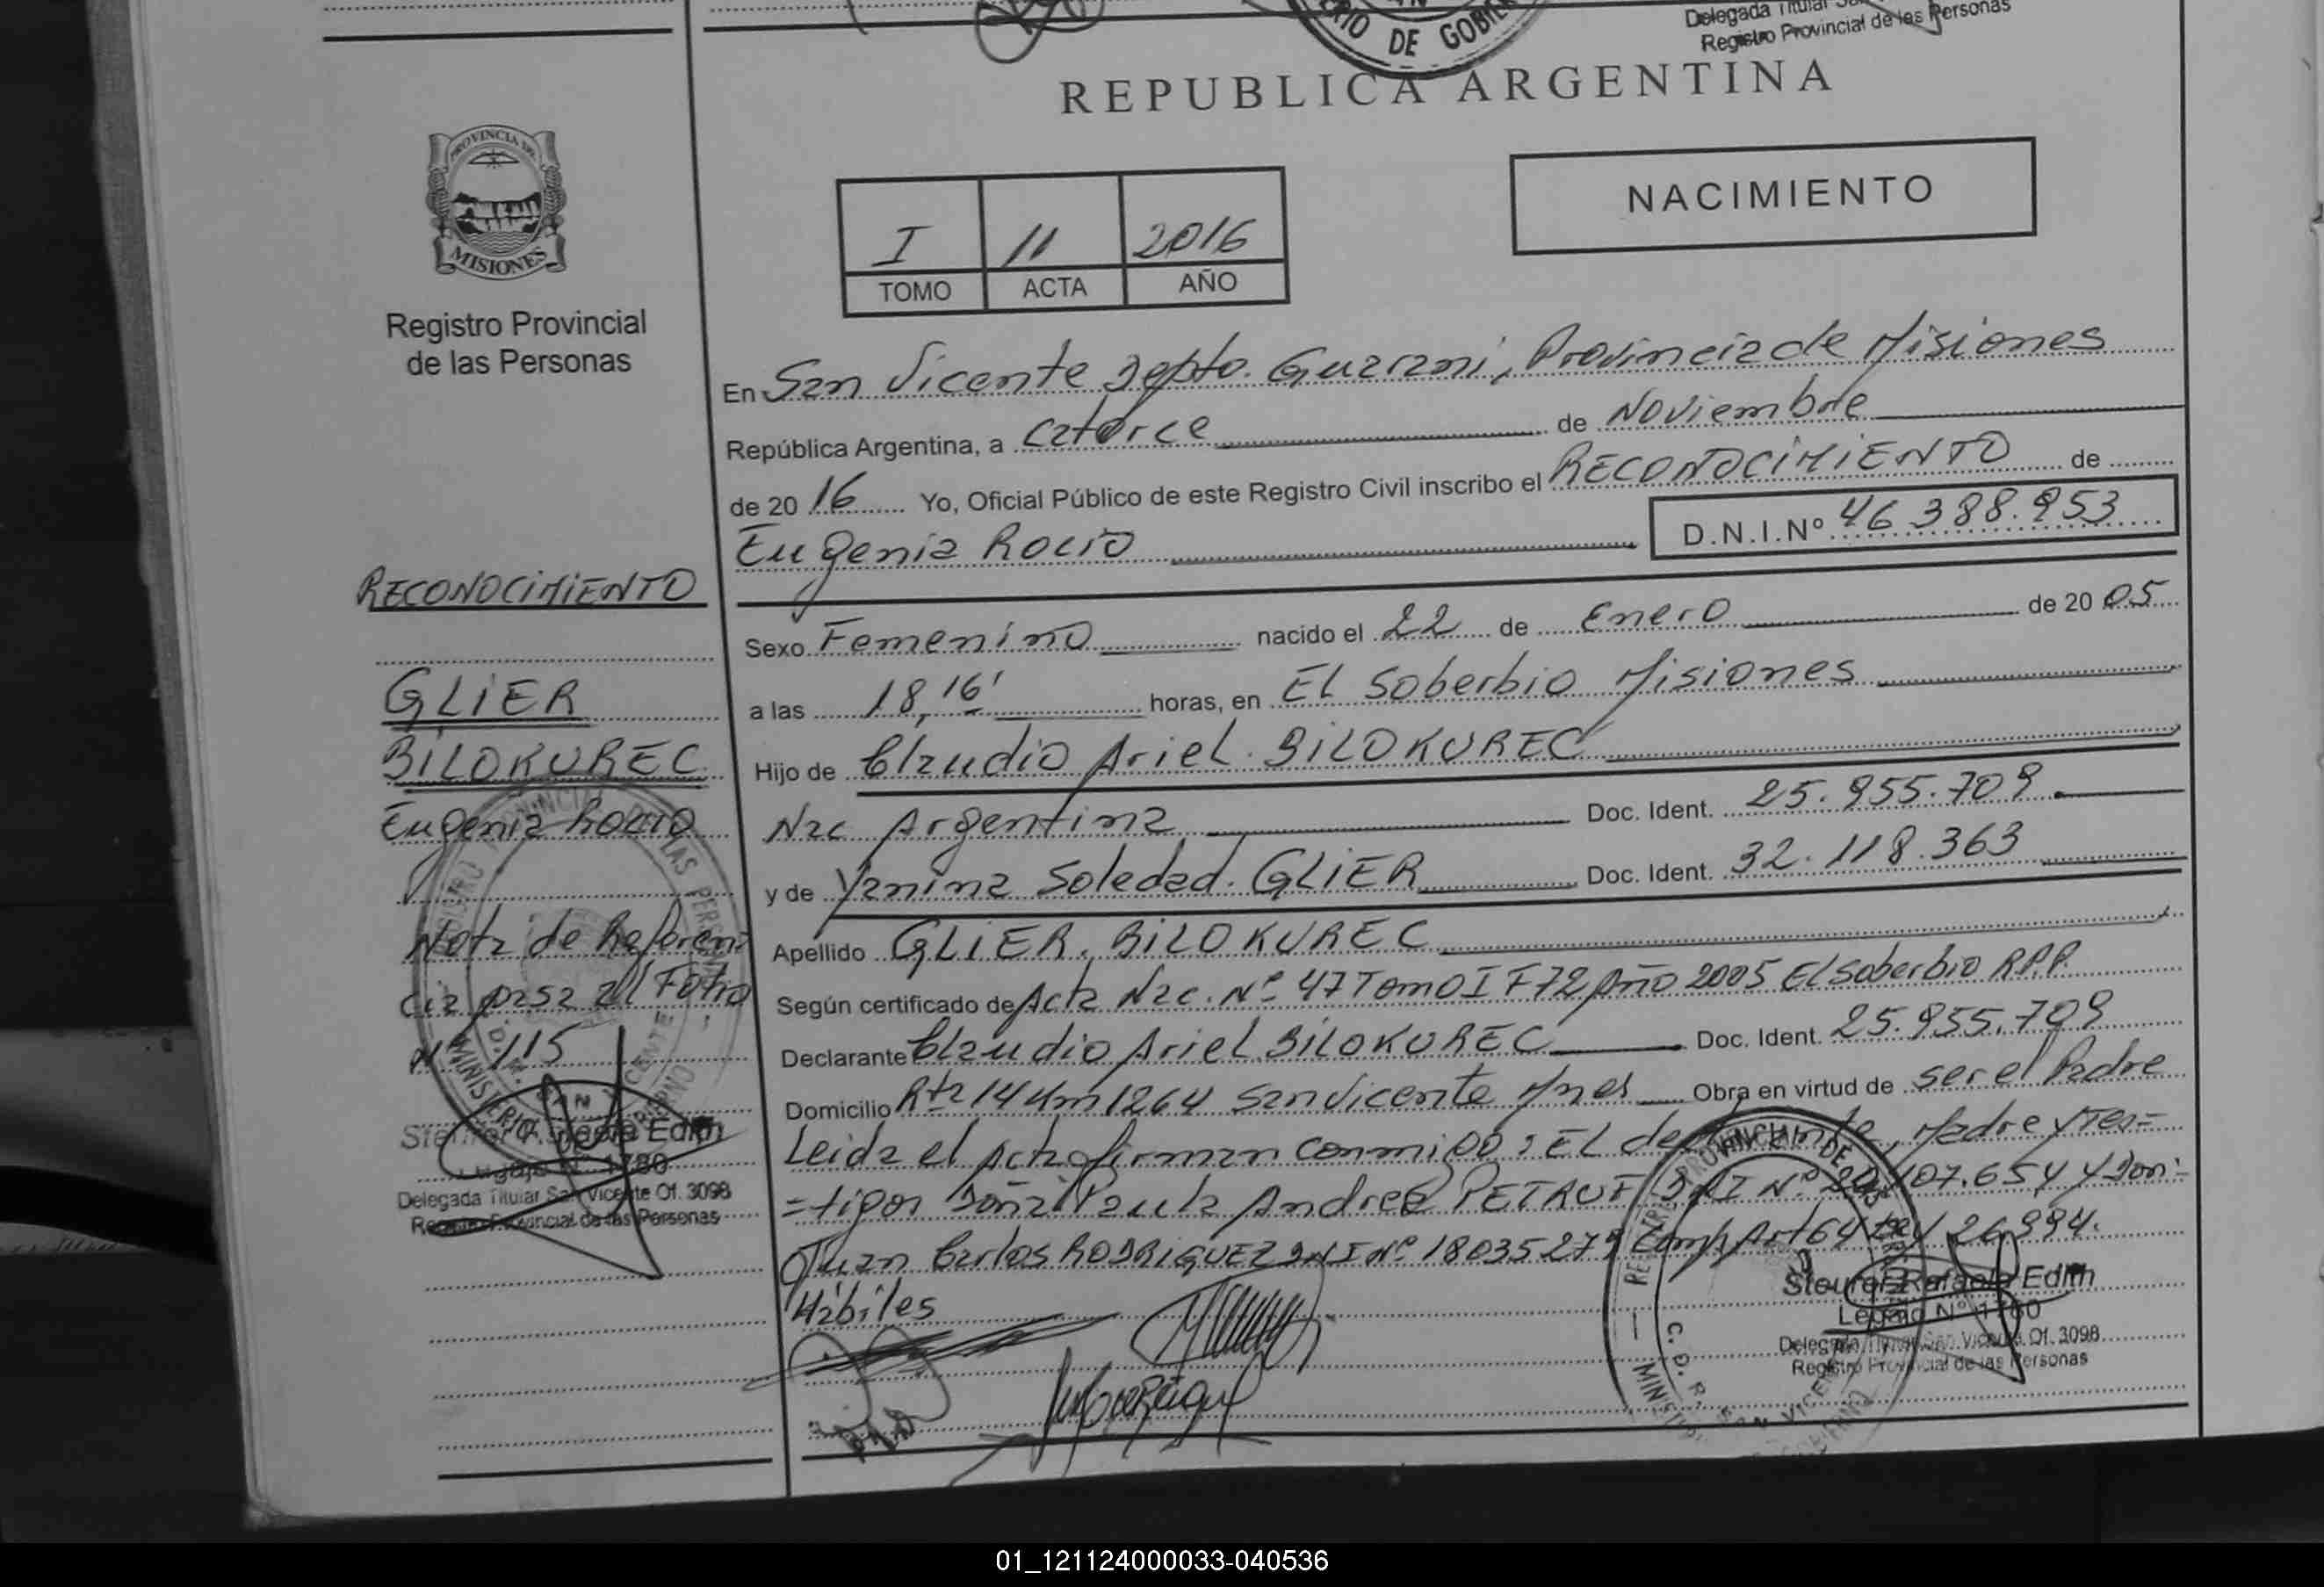 Delegada Titular
Registro Provincial de las Personas
RIO DE GOBI
REPUBLICA ARGENTINA
PROVINCIA DE
MISIONES
Registro Provincial
de las Personas
NACIMIENTO
I 11 2016
TOMO ACTA AÑO
En San Vicente Depto. Guarani, Provincia de Misiones
República Argentina, a Catorce de Noviembre
de 20 16 Yo, Oficial Público de este Registro Civil inscribo el RECONOCIMIENTO de
Eugenia Rocio D.N.I.Nº 46 388.953
Sexo Femenino nacido el 22 de Enero de 20 05
a las 18,16' horas, en El Soberbio Misiones
Hijo de Claudio Ariel BILOKUREC
Nac Argentina Doc. Ident. 25.955.709
y de Yanina Soledad GLIER Doc. Ident. 32.118.363
Apellido GLIER BILOKUREC
Según certificado de Acta Nac. Nº 47 Tomo I F 72 Año 2005 El Soberbio R.P.P.
Declarante Claudio Ariel BILOKUREC Doc. Ident. 25.955.709
Domicilio Rta 14 Km 1264 San Vicente Mnes Obra en virtud de ser el Padre
Leida el Acta firman conmigo: El declarante, Madre y Tes=
=tigos Doña Paula Andrea DNI Nº y Don:
Juan Carlos RODRIGUEZ DNI Nº 18035279 Comp Art 64 Ley 26994.
Hábiles
RECONOCIMIENTO
GLIER
BILOKUREC
Eugenia Rocio
Nota de Referen
cia pasa al Folio
Nº 115
Steurer Rafaela Edith
Legajo Nº 1780
Delegada Titular San Vicente Of. 3098
Registro Provincial de las Personas
Steurer Rafaela Edith
Legajo Nº 1780
Delegada Titular San Vicente Of. 3098
Registro Provincial de las Personas
01_121124000033-040536